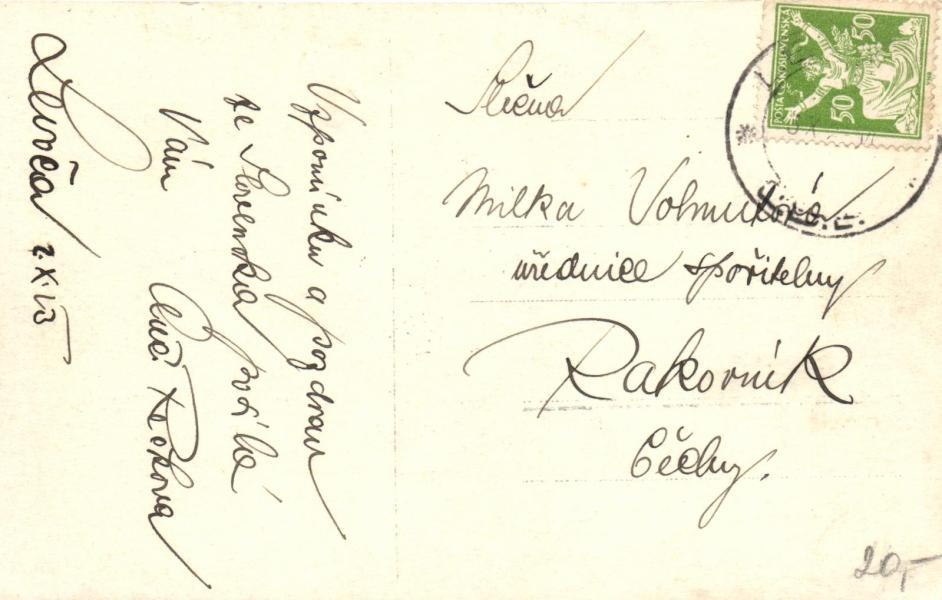 Vzpomínku a pozdrav
ze Slovenska posílá
Vám
Levoča
Slečna
Milka
úřednice spořitelny
Rakovník
Čechy.
POSTA ČESKOSLOVENSKÁ
50 50
20,-